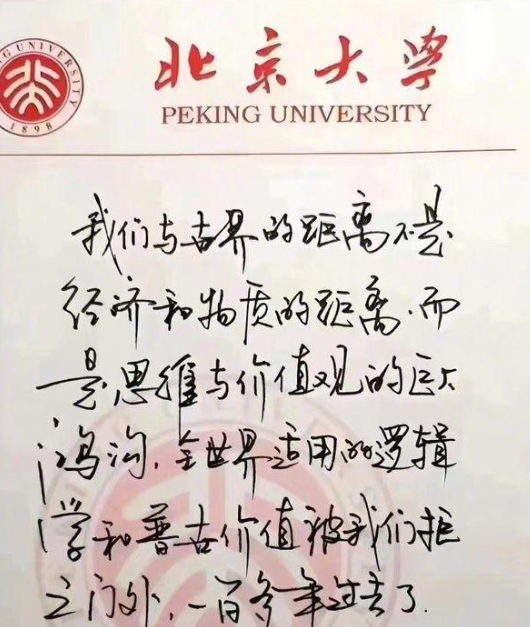 北京大学
PEKING UNIVERSITY
1898
我们与古界的距离不是
经济和物质的距离.而
是思维与价值观的巨大
鸿沟.全世界适用的逻辑
学和普古价值被我们拒
之门外,一百多年过去了.